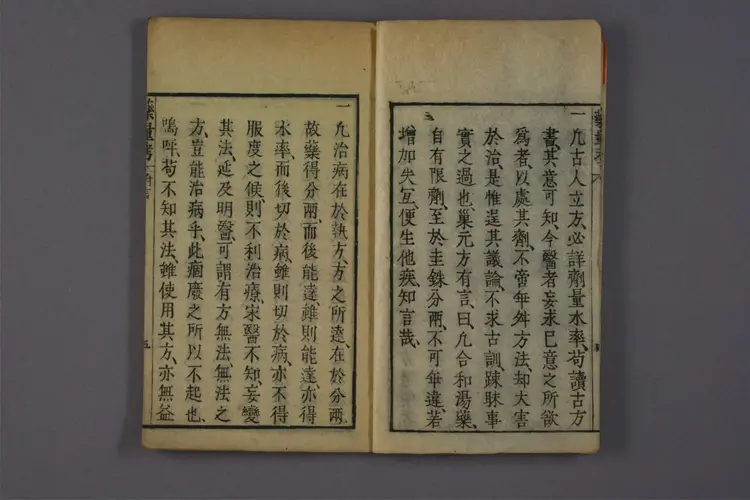 一凡古人立方、必詳劑量水率、苟讀古方
書、其意可知、今醫者妄求已意之所欲
為者、以處其劑、不啻乖舛方法、却大害
於治、是惟逞其議論、不求古訓、踈昧事
實之過也、巢元方有言、曰、凡合和湯藥、
自有限劑、至於圭銖分兩、不可乖違、若
增加失宜、便生他疾、知言哉、
一凡治病在於執方、方之所達、在於分兩、
故藥得分兩、而後能達、雖則能達、亦得
水率、而後切於病、雖則切於病、亦不得
服度之候、則不利治療、宋醫不知、妄變
其法、延及明醫、可謂有方無法、無法之
方、豈能治病乎、此痼廢之所以不起也、
嗚呼、苟不知其法、雖使用其方、亦無益
藥量考
五